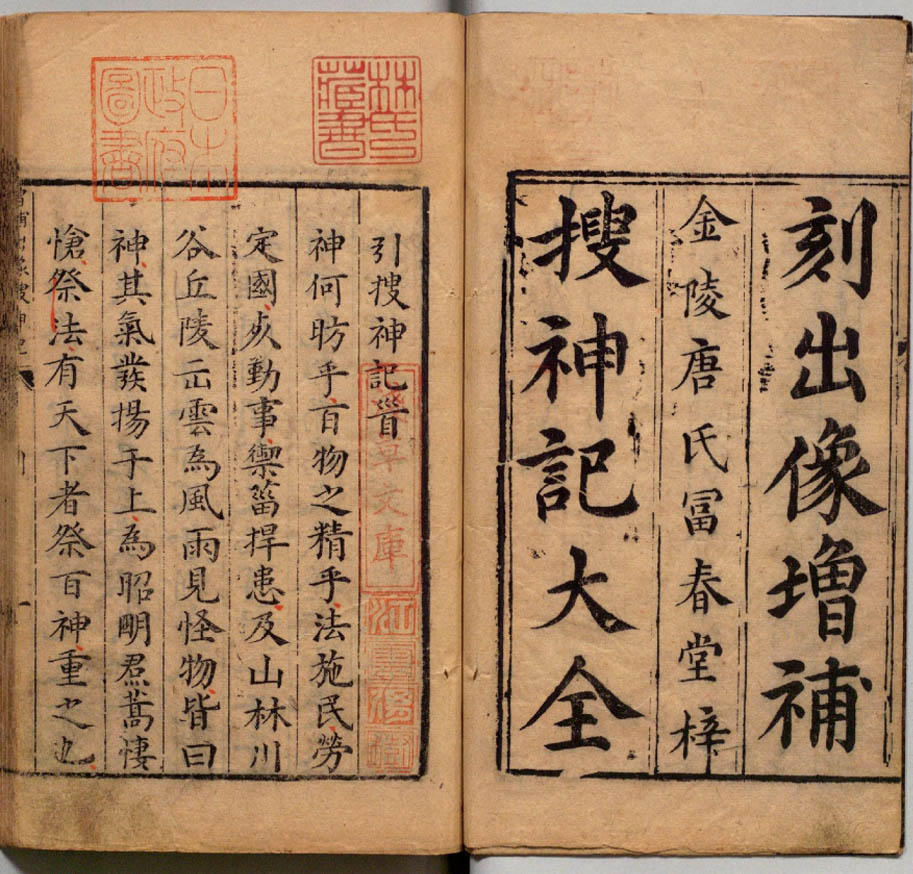 刻出像增補
金陵唐氏冨春堂梓
搜神記大全
林氏藏書
日本政府圖書
引搜神記首
淺草文庫
江雲渭樹
神何昉乎百物之精乎法施民勞
定國死勤事禦菑捍患及山林川
谷丘陵岀雲為風雨見怪物皆曰
神其氣發揚于上為昭明焄蒿悽
愴祭法有天下者祭百神重之也
搜神記